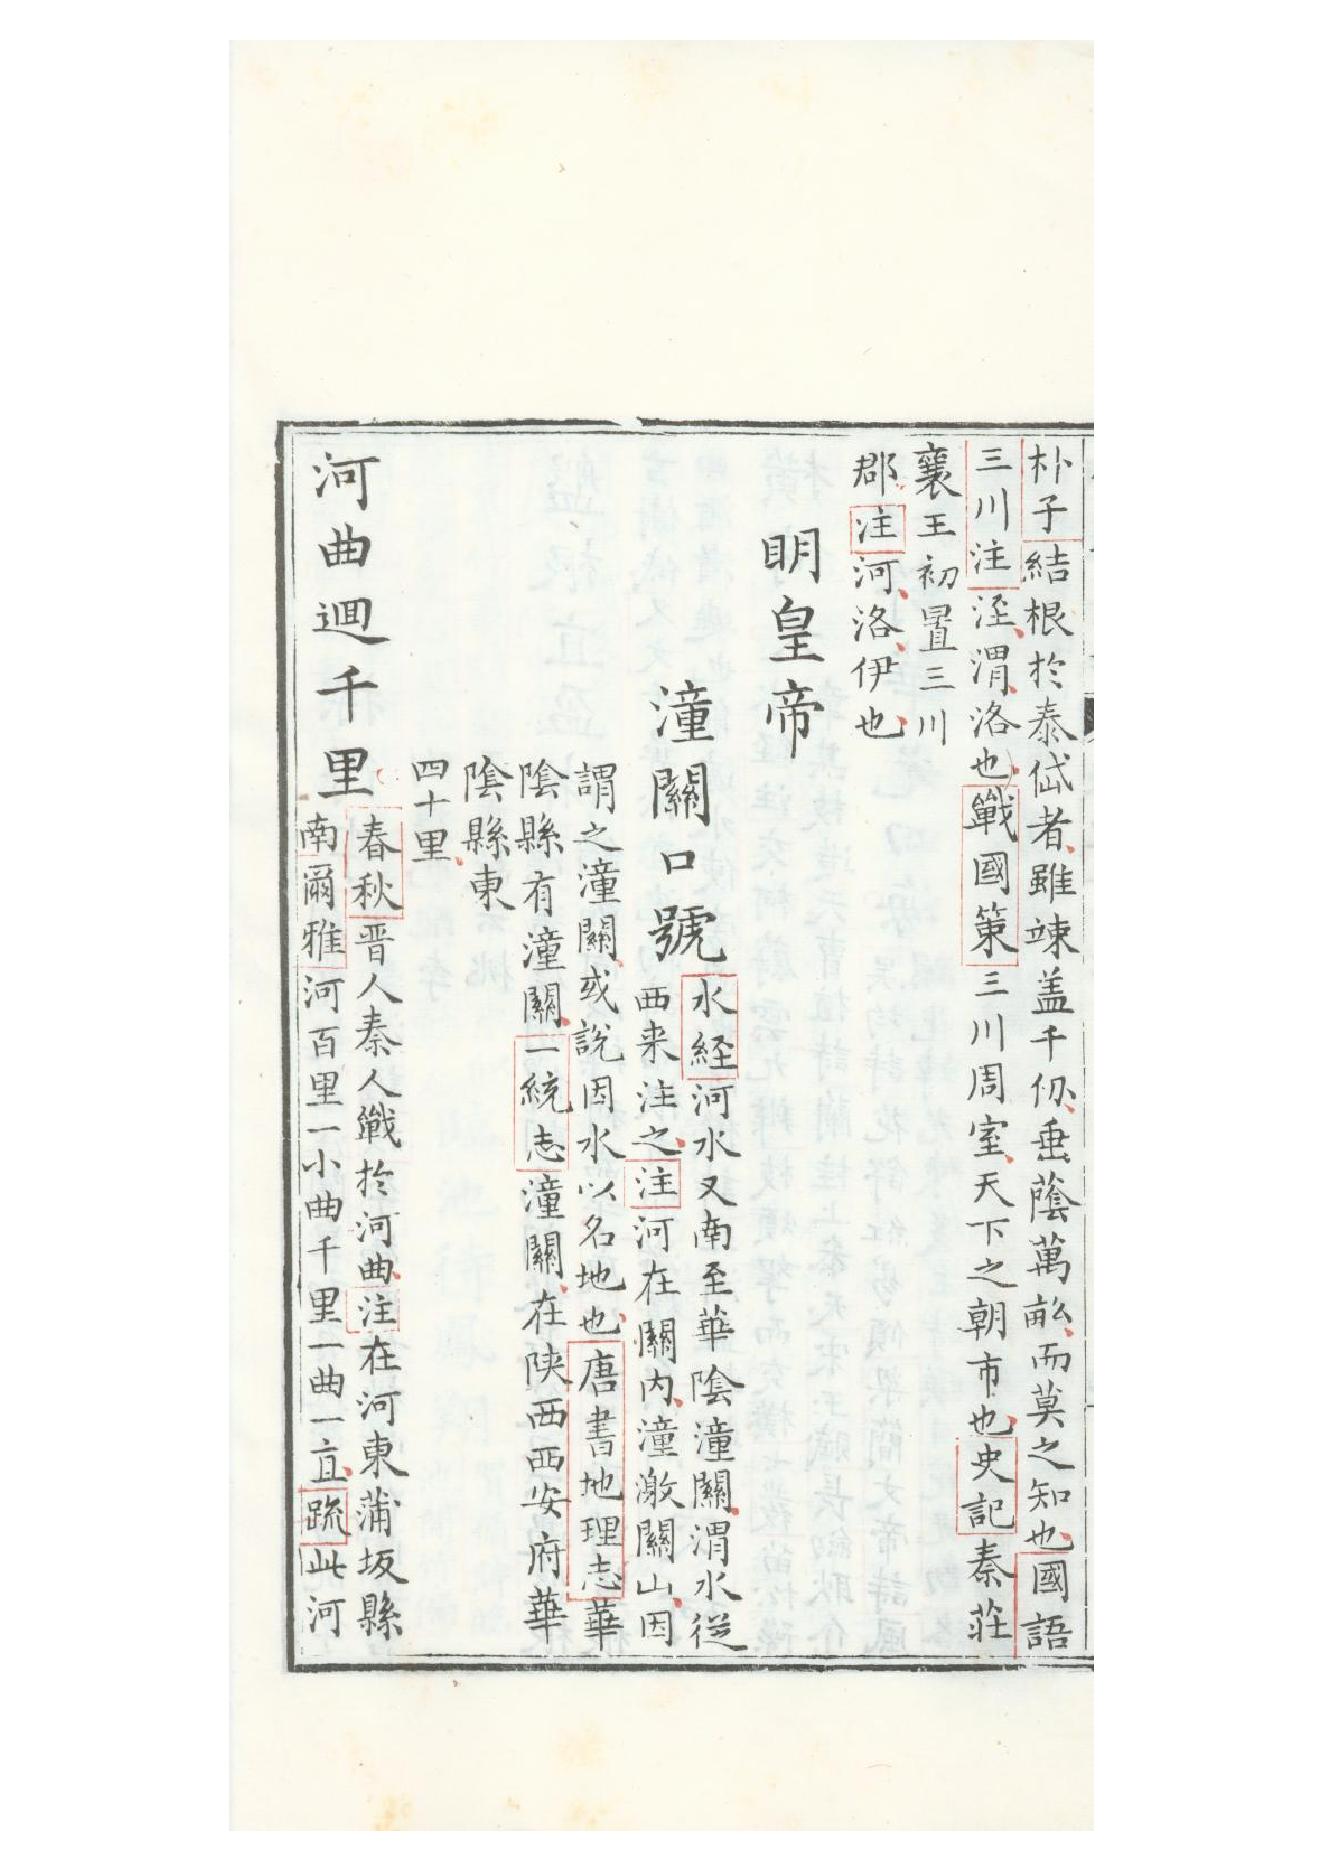 朴子結根於泰岱者雖竦盖千仞垂蔭萬畝而莫之知也國語
三川注涇渭洛也戰國策三川周室天下之朝市也史記秦莊
襄王初置三川
郡注河洛伊也
明皇帝
潼關口號
水経河水又南至華陰潼關渭水從
西来注之注河在關内潼激關山因
謂之潼關或說因水以名地也唐書地理志華
陰縣有潼關一統志潼關在陕西西安府華
陰縣東
四十里
河曲迴千里
春秋晋人秦人戰於河曲注在河東蒲坂縣
南爾雅河百里一小曲千里一曲一直䟽此河